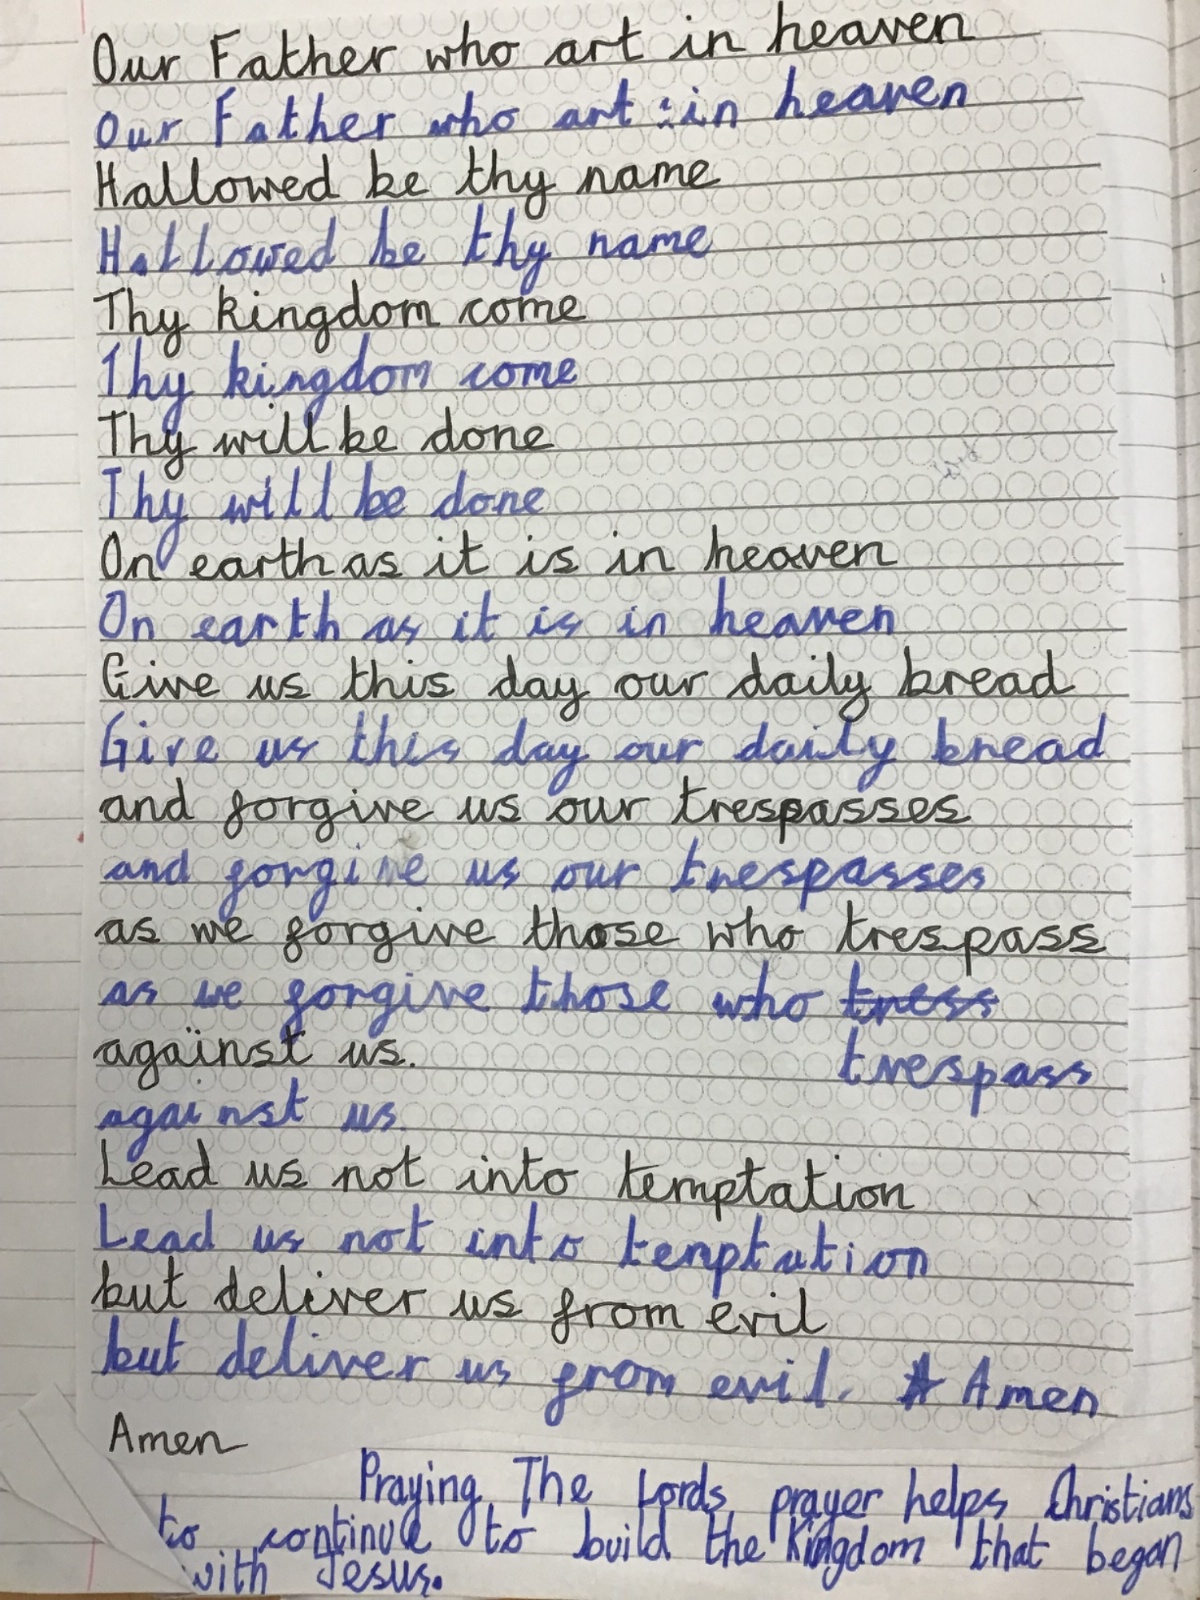 Our Father who art in heaven
Our Father who art in heaven
Hallowed be thy name
Hallowed be thy name
Thy kingdom come
Thy kingdom come
Thy will be done
Thy will be done
On earth as it is in heaven
On earth as it is in heaven
Give us this day our daily bread
Give us this day our daily bread
and forgive us our trespasses
and forgive us our trespasses
as we forgive those who trespass
as we forgive those who tress
against us.
trespass
against us.
Lead us not into temptation
Lead us not into temptation
but deliver us from evil
but deliver us from evil. A Amen
Amen
Praying The Lords prayer helps Christians
to continue to build the Kingdom that began
with Jesus.